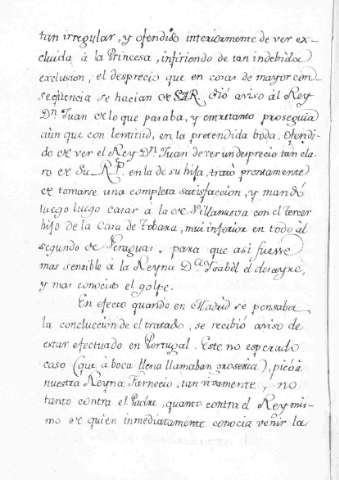 tan irregular, y ofendido interiormente de ver ex-
cluida à la Princesa, infiriendo de tan indebida
exclusion, el desprecio que en cosas de mayor con
seqüencia se hacian de S.A.R. dió aviso àl Rey
Dn. Juan de lo que pasaba, y entretanto proseguia
aùn que con lentitud, en la pretendida boda. Ofendi-
do de ver el Rey Dn. Juan de ver un desprecio tan cla-
ro de su R.P. en la de su hija, trató prontamente
de tomarse una completa satisfaccion, y mandó
luego luego casar à la de Villanueva con el Tercer
hijo de la Casa de Tobara, mui inferior en todo àl
segundo de Paraguas, para que asi fuesse
mas sensible à la Reyna Da. Ysabèl el desayre,
y mas conocido el golpe.
En efecto quando en Madrid se pensaba
la concluccion del tratado, se recibió aviso de
estar efectuado en Portugal. Este no esperado
caso (que à boca llena llamaban groseria), picó à
nuestra Reyna Farnecio, tan vivamente, no
tanto contra el Padre, quanto contra el Rey mis-
mo de quien inmediatamente conocia venir la